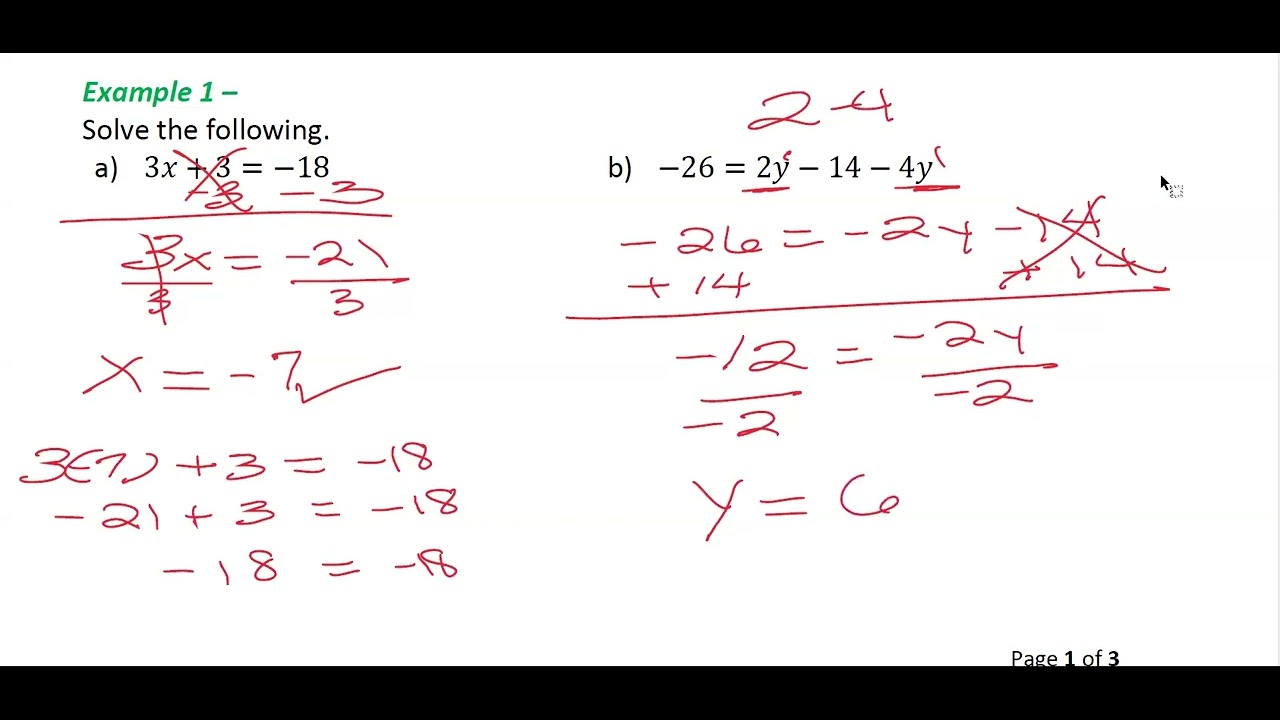 Example 1 –
Solve the following.
a) 3x + 3 = −18
-3 -3
3x = -21
3 3
x = -7 ✓
3(-7) + 3 = -18
-21 + 3 = -18
-18 = -18
2 -4
b) −26 = 2y − 14 − 4y
-26 = -2y -14
+14 +14
-12 = -2y
-2 -2
y = 6
Page 1 of 3